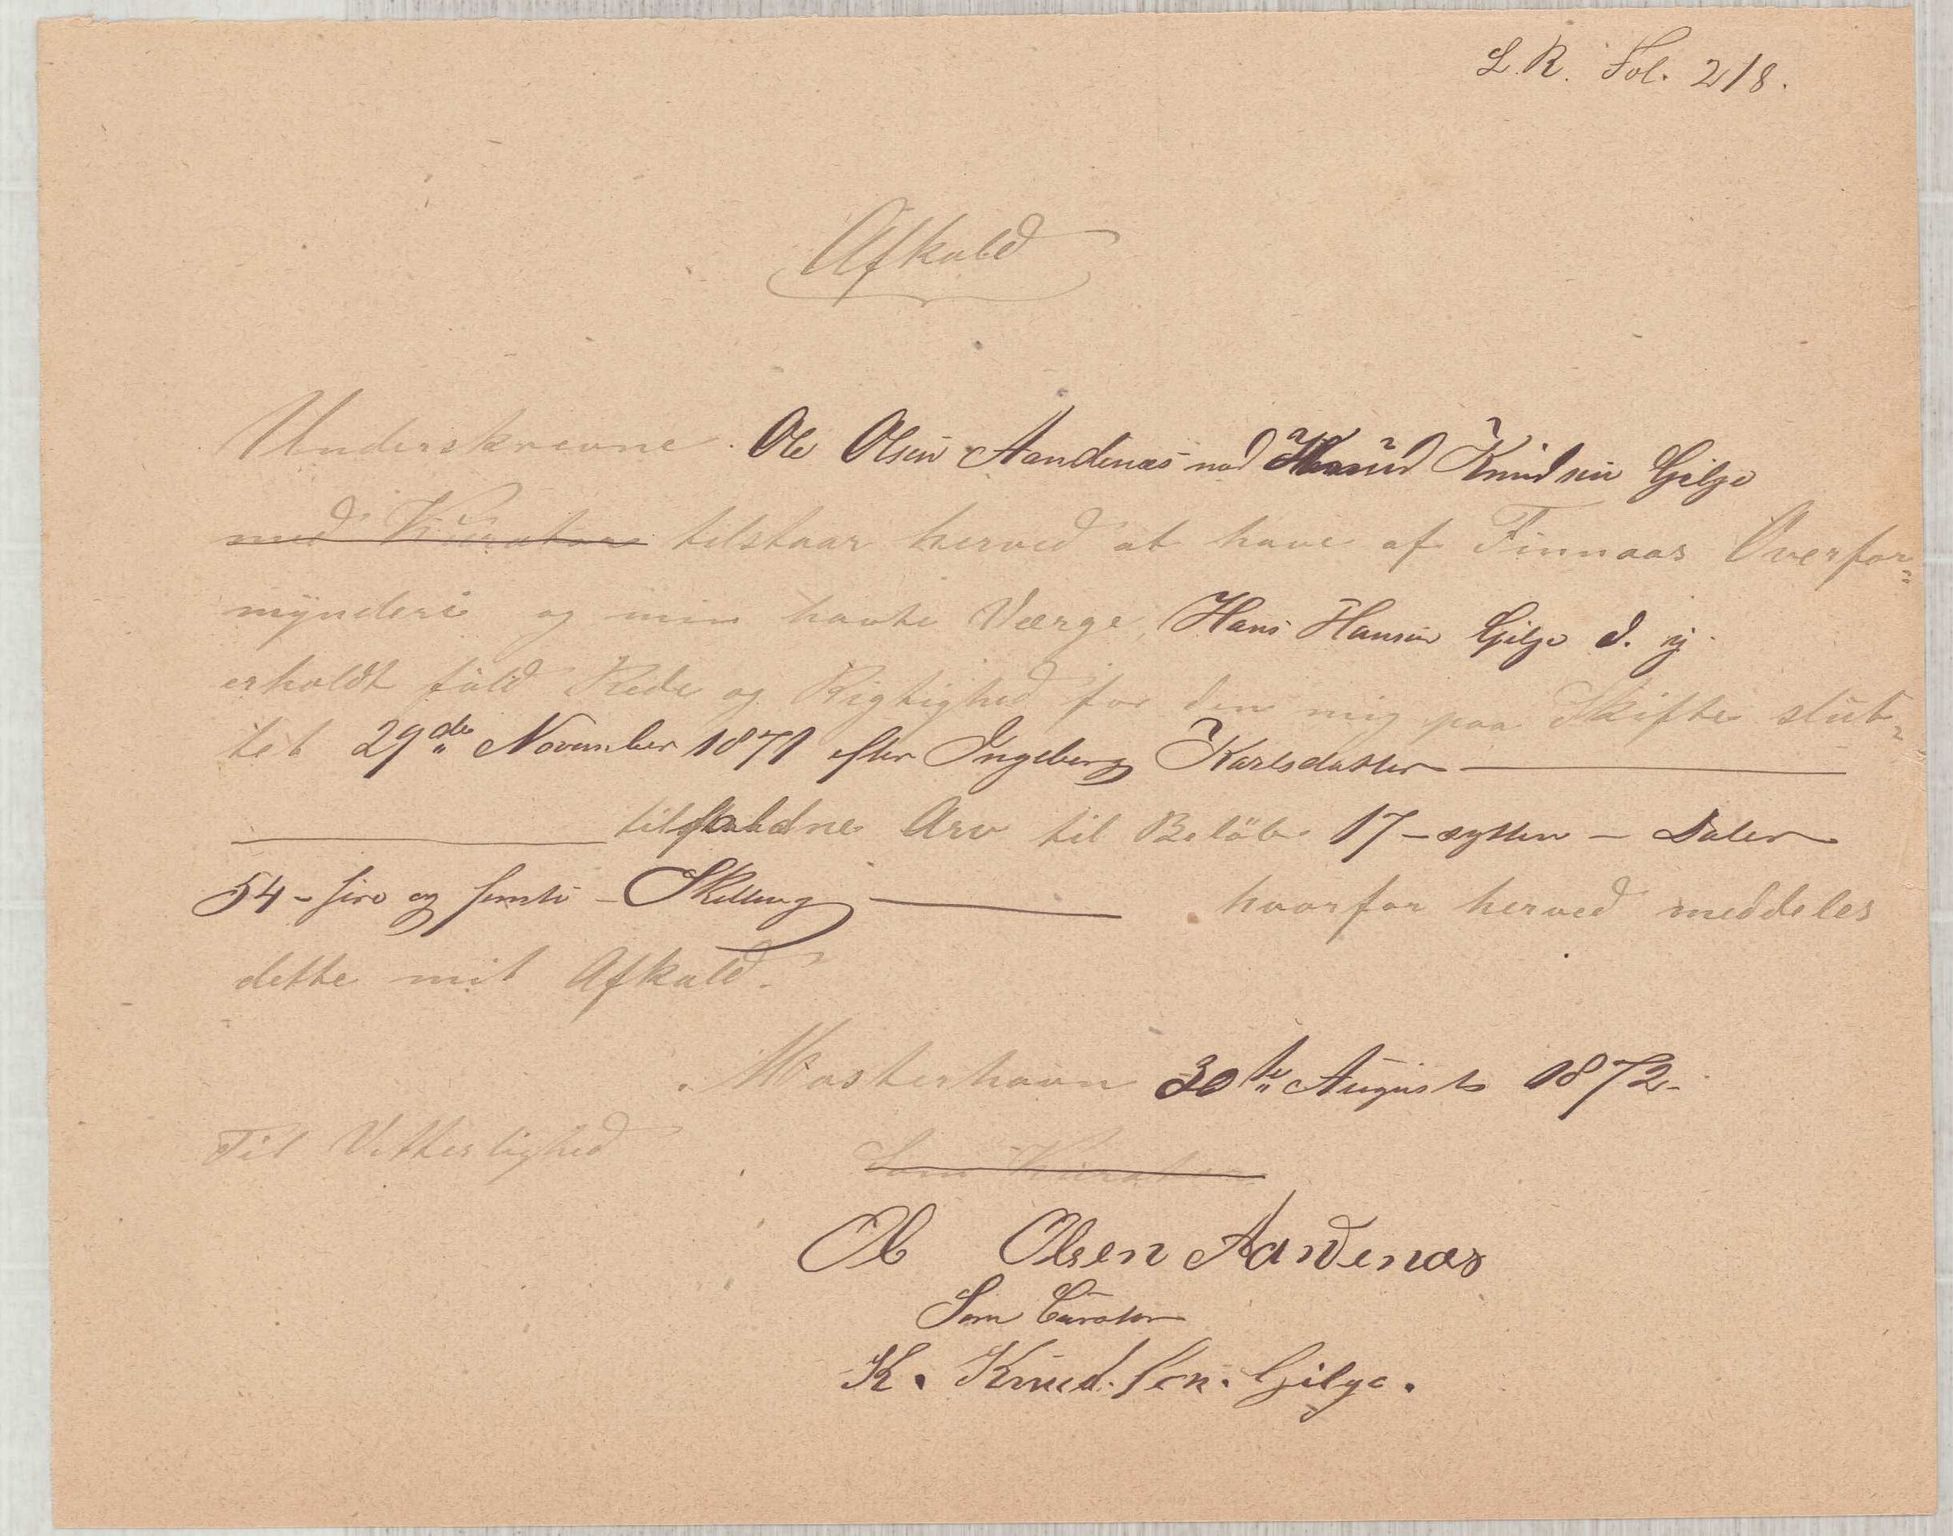 L. R. Fol. 218.
Afkald
Underskrevne Ole Olsen Aandenæs med Knud Knudsen Gilje
med Kurator tilstaar herved at have af Finnaas Overfor-
mynderi og min havte Værge, Hans Hansen Gilje d. y.
erholdt fuld Rede og Rigtighed for den mig paa Skifte slut-
tet 29de November 1871 efter Ingeborg Karlsdatter
tilfaldne Arv til Beløb 17 - sytten - Daler
54 - fire og femti - Skilling hvorfor herved meddeles
dette mit Afkald.
Mosterhavn 30te August 1872.
Til Vitterlighed
Som Kurator
Ole Olsen Aandenæs
Som Curator
K. Knud.sen. Gilje.